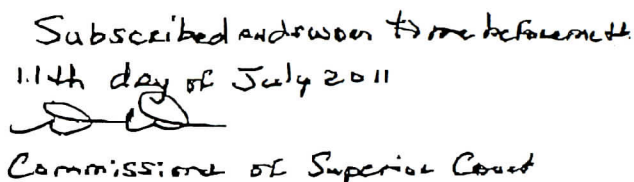 Subscribed and sworn to me before me th
11th day of July 2011
Commissioner of Superior Court